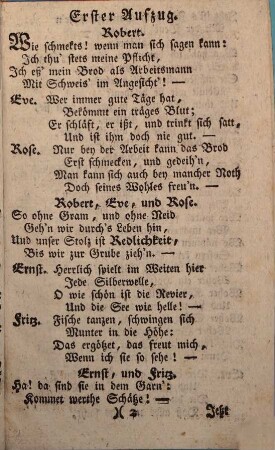 Erster Aufzug.
Robert.
Wie schmekts! wenn man sich sagen kann:
Ich thu' stets meine Pflicht,
Ich eß' mein Brod als Arbeitsmann
Mit Schweis' im Angesicht'! —
Eve. Wer immer gute Täge hat,
Bekömmt ein träges Blut;
Er schläft, er ißt, und trinkt sich satt,
Und ist ihm doch nie gut. —
Rose. Nur bey der Arbeit kann das Brod
Erst schmecken, und gedeih'n,
Man kann sich auch bey mancher Noth
Doch seines Wohles freu'n. —
Robert, Eve, und Rose.
So ohne Gram, und ohne Neid
Geh'n wir durch's Leben hin,
Und unser Stolz ist Redlichkeit,
Bis wir zur Grube zieh'n. —
Ernst. Herrlich spielt im Weiten hier
Jede Silberwelle,
O wie schön ist die Revier,
Und die See wie helle! —
Fritz. Fische tanzen, schwingen sich
Munter in die Höhe:
Das ergötzt, das freut mich,
Wenn ich sie so sehe! —
Ernst, und Fritz.
Ha! da sind sie in dem Garn':
Kommet werthe Schätze! —
)( 2 Jetzt